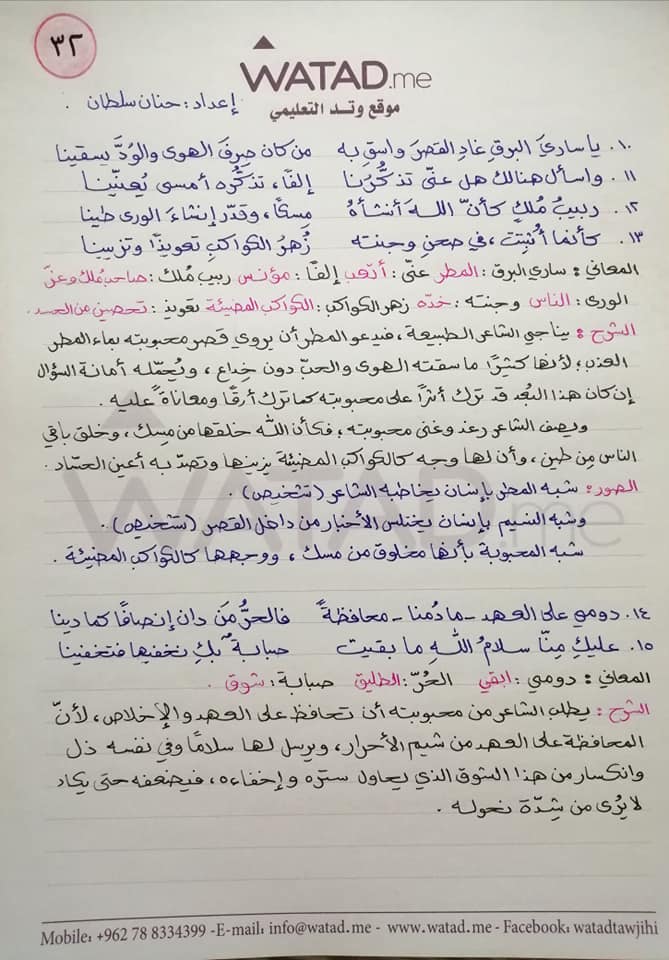 ٣٢
WATAD.me
موقع وتد التعليمي
إعداد : حنان سلطان .
١٠. يا ساريَ البرقِ غادِ القصرَ واسقِ به من كان صِرفَ الهوى والوُدَّ يسقينا
١١. واسأل هنالك هل عنّى تذكُّرُنا إلفًا، تذكُّره أمسى يُعنّينا
١٢. ربيبُ مُلكٍ كأنّ اللهَ أنشأهُ مِسكًا، وقدّر إنشاءَ الورى طينا
١٣. كأنما أُثبتت، في صحنِ وجنته زُهرُ الكواكبِ تعويذًا وتزيينا
المعاني : ساري البرق : المطر عنّى : أتعب إلفًا : مؤنس ربيب مُلك : صاحب مُلك وعزّ
الورى : الناس وجنته : خدّه زهر الكواكب : الكواكب المضيئة تعويذ : تحصين من الحسد .
الشرح : يناجي الشاعر الطبيعة ، فيدعو المطر أن يروي قصر محبوبته بماء المطر
العذب ؛ لأنها كثيرًا ما سقته الهوى والحبّ دون خداع ، ويُحمّله أمانة السؤال
إن كان هذا البُعد قد ترك أثرًا على محبوبته كما ترك أرقًا ومعاناةً عليه .
ويصف الشاعر رغد وغنى محبوبته ، فكأن الله خلقها من مِسك ، وخلق باقي
الناس مِن طين ، وأن لها وجه كالكواكب المضيئة يزينها وتصدّ به أعين الحسّاد .
الصور : شبه المطر بإنسان يخاطبه الشاعر (تشخيص) .
وشبه النسيم بإنسان يختلس الأخبار من داخل القصر (تشخيص) .
شبه المحبوبة بأنها مخلوق من مسك ، ووجهها كالكواكب المضيئة .
١٤. دومي على العهد - ما دُمنا - محافظةً فالحرُّ مَن دان إنصافًا كما دينا
١٥. عليكِ مِنّا سلامُ اللهِ ما بقيت صبابةٌ بكِ نخفيها فتخفينا
المعاني : دومي : ابقي الحُرّ : الطليق صبابة : شوق .
الشرح : يطلب الشاعر من محبوبته أن تحافظ على العهد والإخلاص ، لأنّ
المحافظة على العهد من شيم الأحرار ، ويرسل لها سلامًا وفي نفسه ذل
وانكسار من هذا الشوق الذي يحاول ستره وإخفاءه ، فيضعفه حتى يكاد
لا يُرى من شِدّة نحوله .
WATAD.me
Mobile: +962 78 8334399 -E-mail: info@watad.me - www.watad.me - Facebook: watadtawjihi